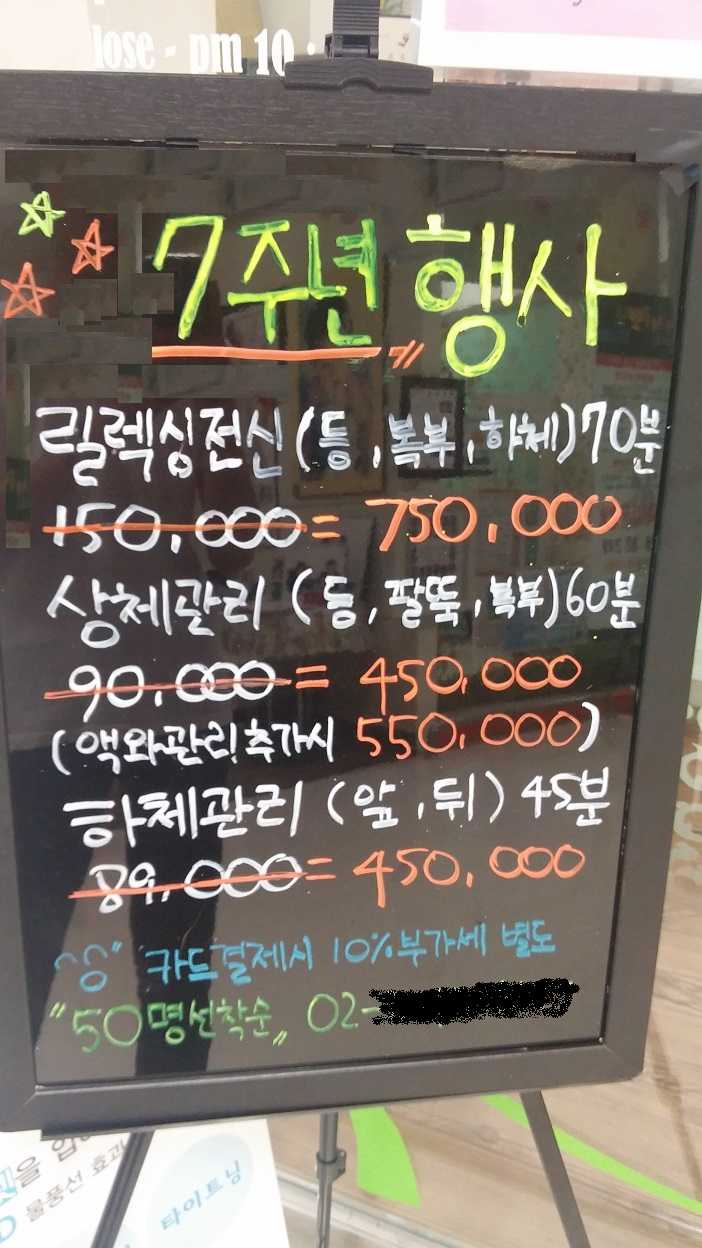 lose - pm 10 :
7주년 행사
릴렉싱전신(등,복부,하체)70분
150,000 = 750,000
상체관리 (등,팔뚝,복부)60분
90,000 = 450,000
(액와관리추가시 550,000)
하체관리 (앞,뒤) 45분
89,000 = 450,000
카드결제시 10%부가세 별도
"50명선착순" 02-
을 입
물풍선 효과
타이트닝